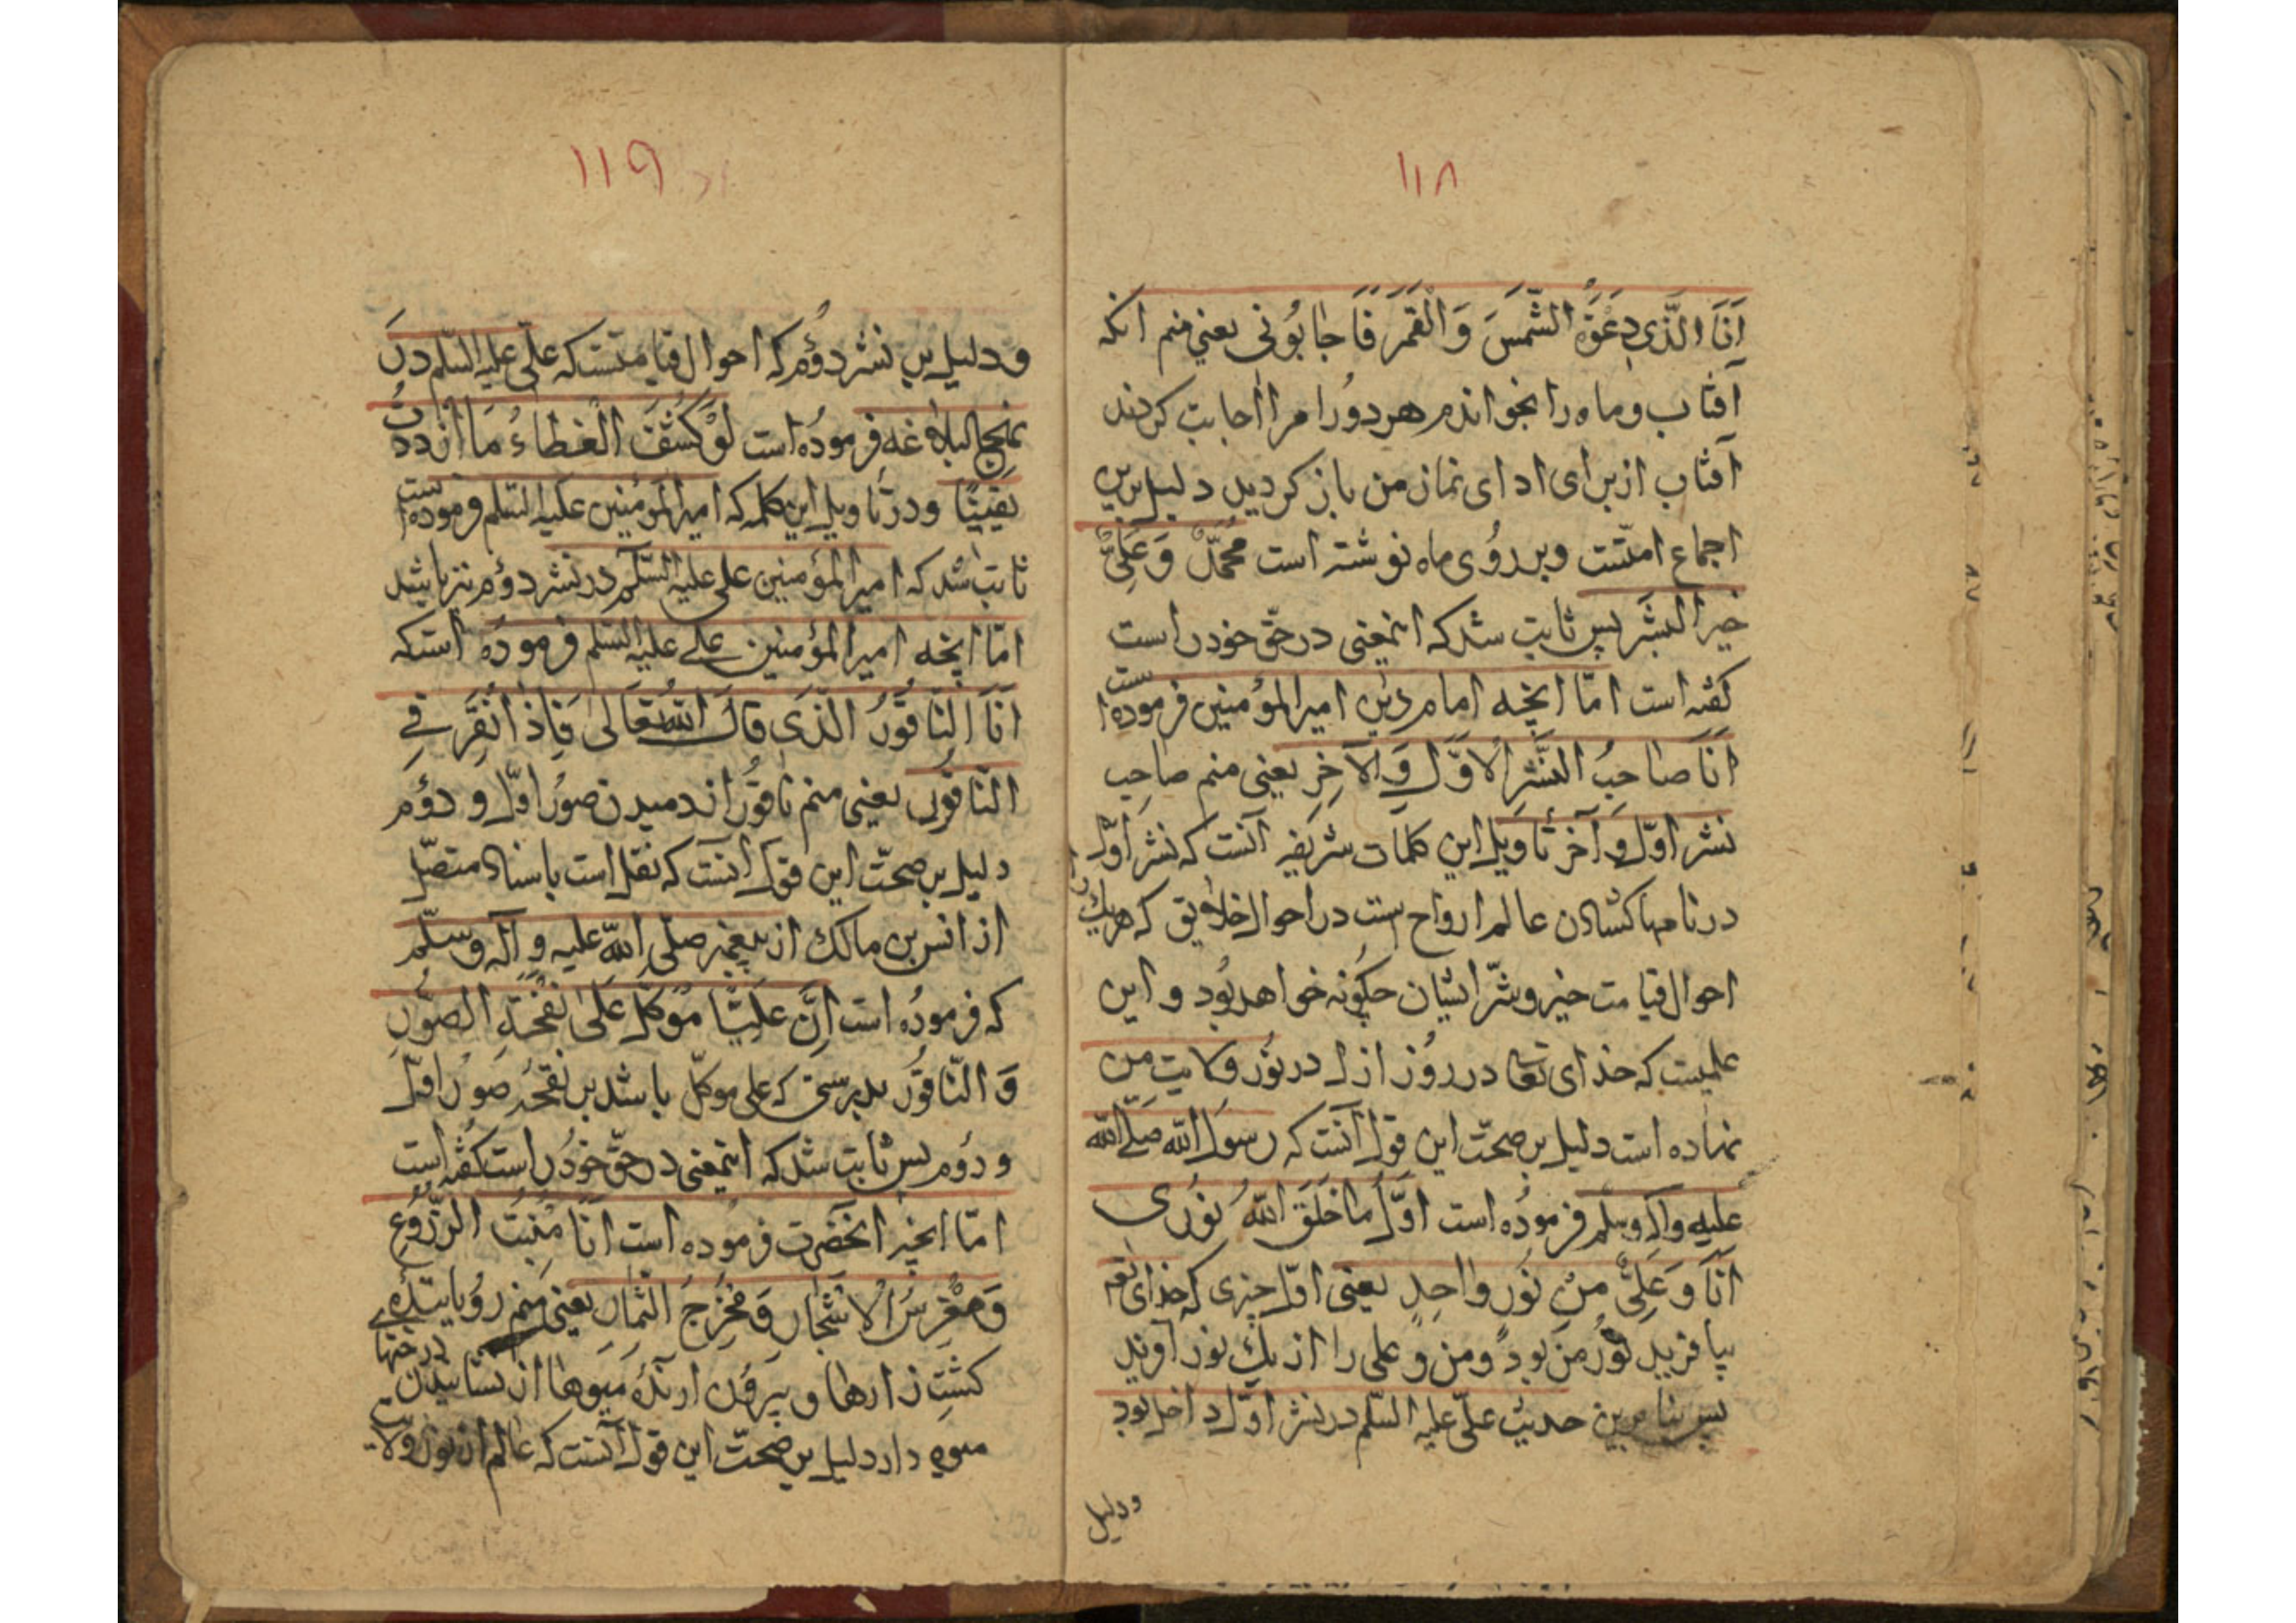 ۱۱۸
اَنَا الَّذِی دَعَوَةُ الشَّمسَ وَ الْقَمَرَ فَاَجابُونی یعنی منم انکه
آفتاب و ماه را بخواندم هر دُو را مرا اجابت کردند
آفتاب از برای ادای نماز من باز کردید دلیل برین
اجماع امتست و بر رُوی ماه نوشته است مُحَمَّدٌ وَ عَلِیٌّ
خیر البَشَر پس ثابت شد که اینمعنی در حقّ خود راست
کفته است امّا انچه امام دین امیر المؤمنین فرموده است
اَنَا صاحِبُ النَّشرِ الاَوَّلِ وَ الآخِرِ یعنی منم صاحب
نشر اوّل و آخر تأویل این کلمات شریفه آنست که نشر اوّل
در نامها کشادن عالم ارواح است در احوال خلایق که هر یك
احوال قیامت خیر و شرّ ایشان چکونه خواهد بُود و این
علمیست که خدای تعا در رُوز ازل در نُور ولایت من
نهاده است دلیل بر صحّت این قول آنست که رسول الله صلّی الله
علیه و آله و سلم فرمُوده است اوَّلُ ما خَلَقَ اللّٰهُ نُوری
اَنَا وَ عَلِیٌّ مِنْ نُورٍ واحِدٍ یعنی اوّل چیزی که خدای تعه
بیافرید نُور من بود و من و علی را از یك نور آفرید
پس بنابرین حدیث علیّ علیه السّلم در نشر اوّل داخل بود
و دلیل
۱۱۹
و دلیل بر نشر دوُم که احوال قیامتست که علیّ علیه السّلم در
نهج البلاغه فرمُوده است لَوْ کُشِفَ الْغِطاءُ مَا ازددتُ
یَقینًا و در تأویل این کلمه که امیر المؤمنین علیه السّلم فرموده است
ثابت شد که امیر المؤمنین علی علیه السّلم در نشر دوُم نیز باشد
امّا انچه امیر المؤمنین علی علیه السّلم فرموده است که
اَنَا النّاقُورُ الَّذی قالَ اللّٰهُ تَعَالی فَاِذا نُقِرَ فِی
النّاقُور یعنی منم ناقُور از دمیدن صوُر اوّل و دوُم
دلیل بر صحّت این قول آنست که نقل است باسناد متصّل
از انس بن مالك از پیغمبر صلّی الله علیه و آله و سلّم
که فرموُده است اِنَّ عَلِیًّا مُوَکَّلٌ عَلی نَفْخَةِ الصُّورِ
وَ النّاقُور بدرستی که علی موکّل باشد بر نفخهٔ صوُر اوّل
و دوُم پس ثابت شد که اینمعنی در حقّ خوُد راست کفته است
امّا انچه انحضرت فرموده است اَنَا مُنْبِتُ الزّرُوعِ
وَ مُغْرِسُ الاَشْجارِ وَ مُخْرِجُ الثِّمارِ یعنی منم رُویانیدهٔ
کشت زارها و بیرُون آرندهٔ میوها از نشانیدن درختهای
میوه دار دلیل بر صحّت این قول آنست که عالم از نور ولایت